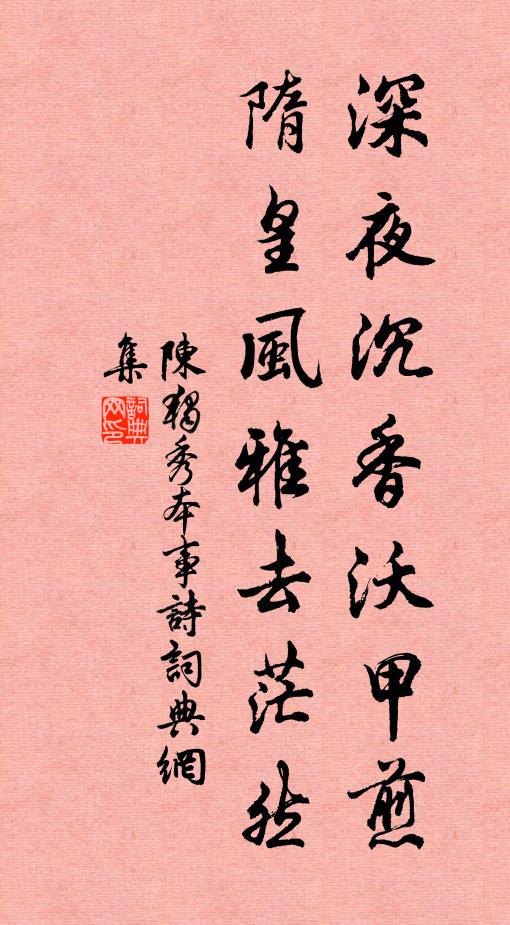 深夜沉香沃甲煎
隋皇風雅去茫然
陳獨秀本事詩詞典網
集
詞典网印